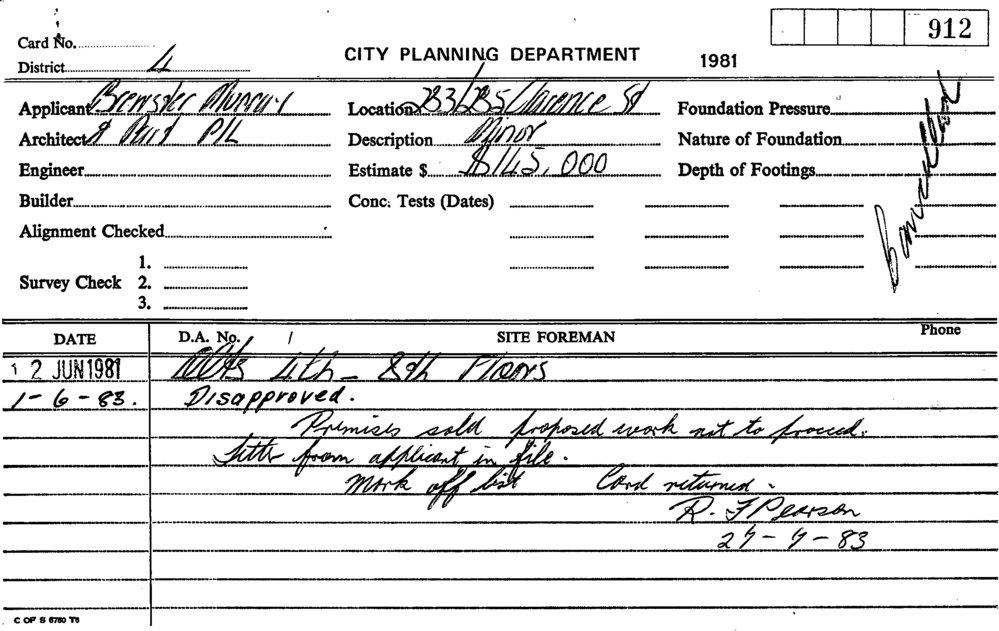 912
Card No.
CITY PLANNING DEPARTMENT 1981
District 4
Applicant Brewster Murray Location 283/285 Clarence St Foundation Pressure
Architect & Part P/L Description Minor Nature of Foundation
Engineer Estimate $ $145,000 Depth of Footings
Builder Conc. Tests (Dates)
Cancelled
Alignment Checked
1.
Survey Check 2.
3.
DATE D.A. No. SITE FOREMAN Phone
12 JUN 1981 Alts 4th - 8th Floors
1-6-83. Disapproved.
Premises sold proposed work not to proceed.
Letter from applicant in file.
Mark off list Card returned.
R. F Pearson
83
C OF S 6760 T6